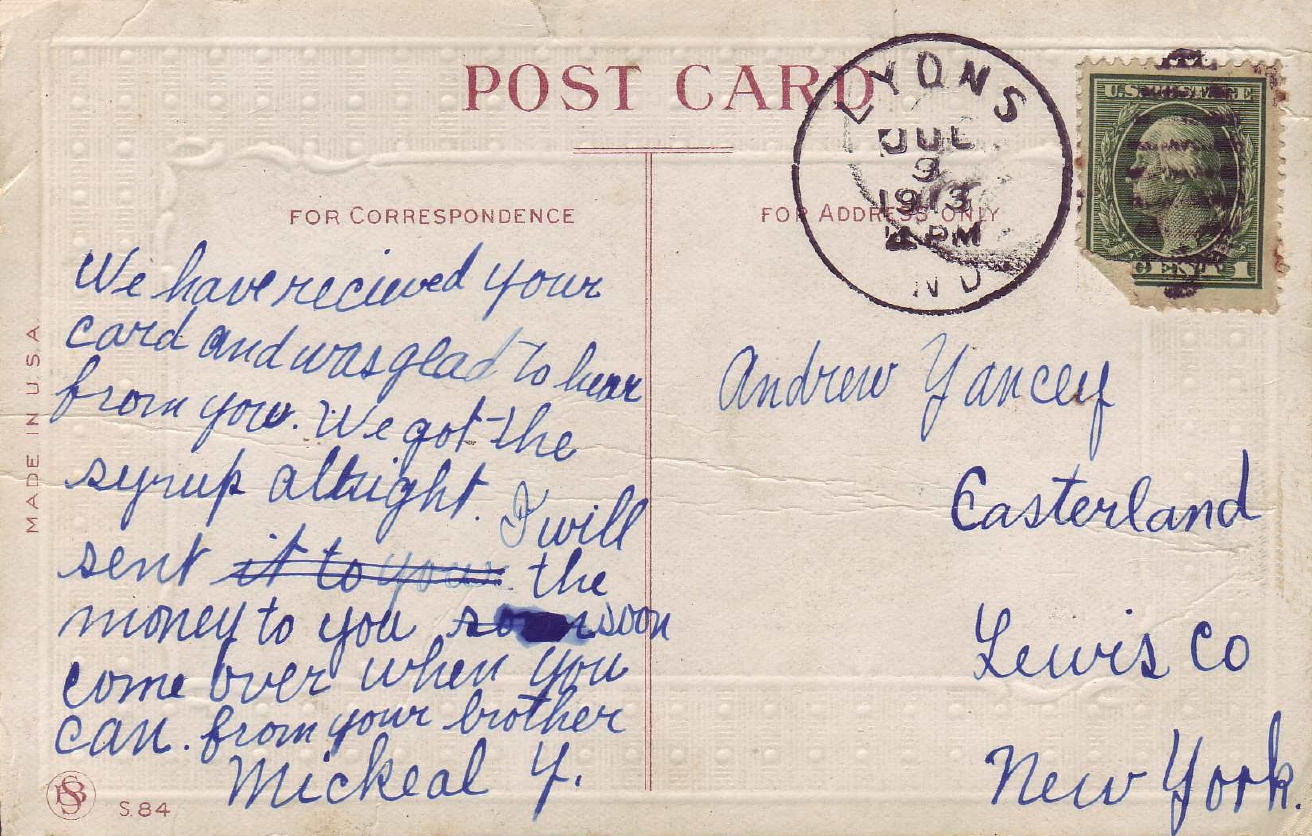 POST CARD
LYONS
JUL
9
1913
PM
U.S. POSTAGE
CENT 1
FOR CORRESPONDENCE
FOR ADDRESS ONLY
MADE IN U.S.A.
We have recieved your
card and was glad to hear
from you. We got the
syrup allright. I will
sent it to your the
money to you soon
come over when you
can. from your brother
Mickeal Y.
Andrew Yancey
Casterland
Lewis Co
New York.
S.84